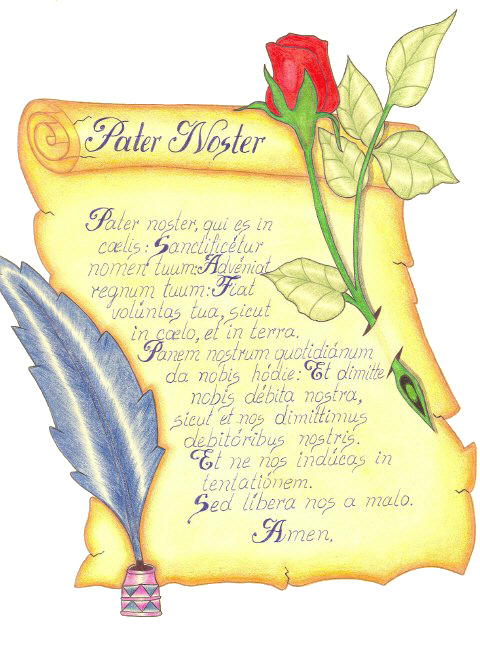 Pater Noster
Pater noster, qui es in
cœlis: Sanctificétur
nomen tuum: Advéniat
regnum tuum: Fiat
volúntas tua, sicut
in cœlo, et in terra.
Panem nostrum quotidiánum
da nobis hódie: Et dimitte
nobis débita nostra,
sicut et nos dimíttimus
debitóribus nostris.
Et ne nos indúcas in
tentatiónem.
Sed líbera nos a malo.
Amen.